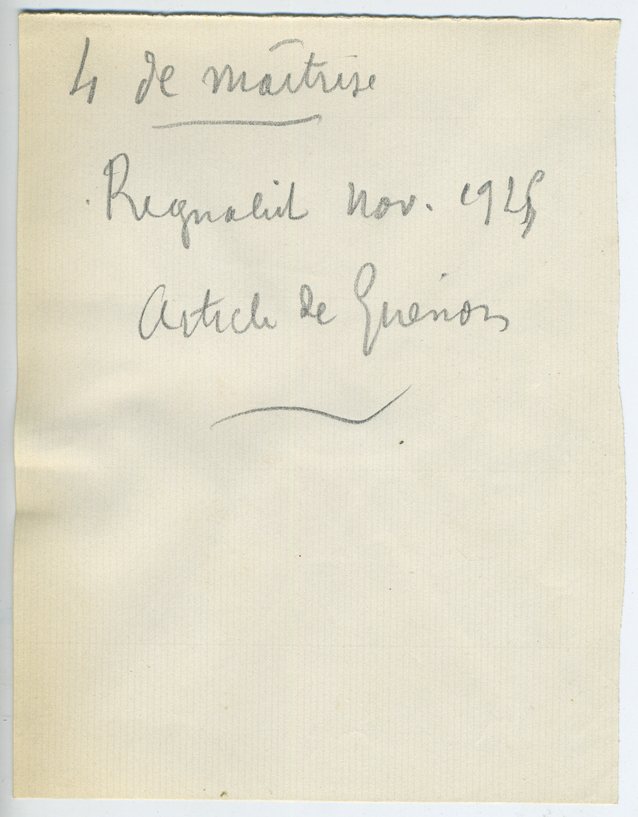 4 de maîtrise
Regnabit nov. 1925
Article de Guénon